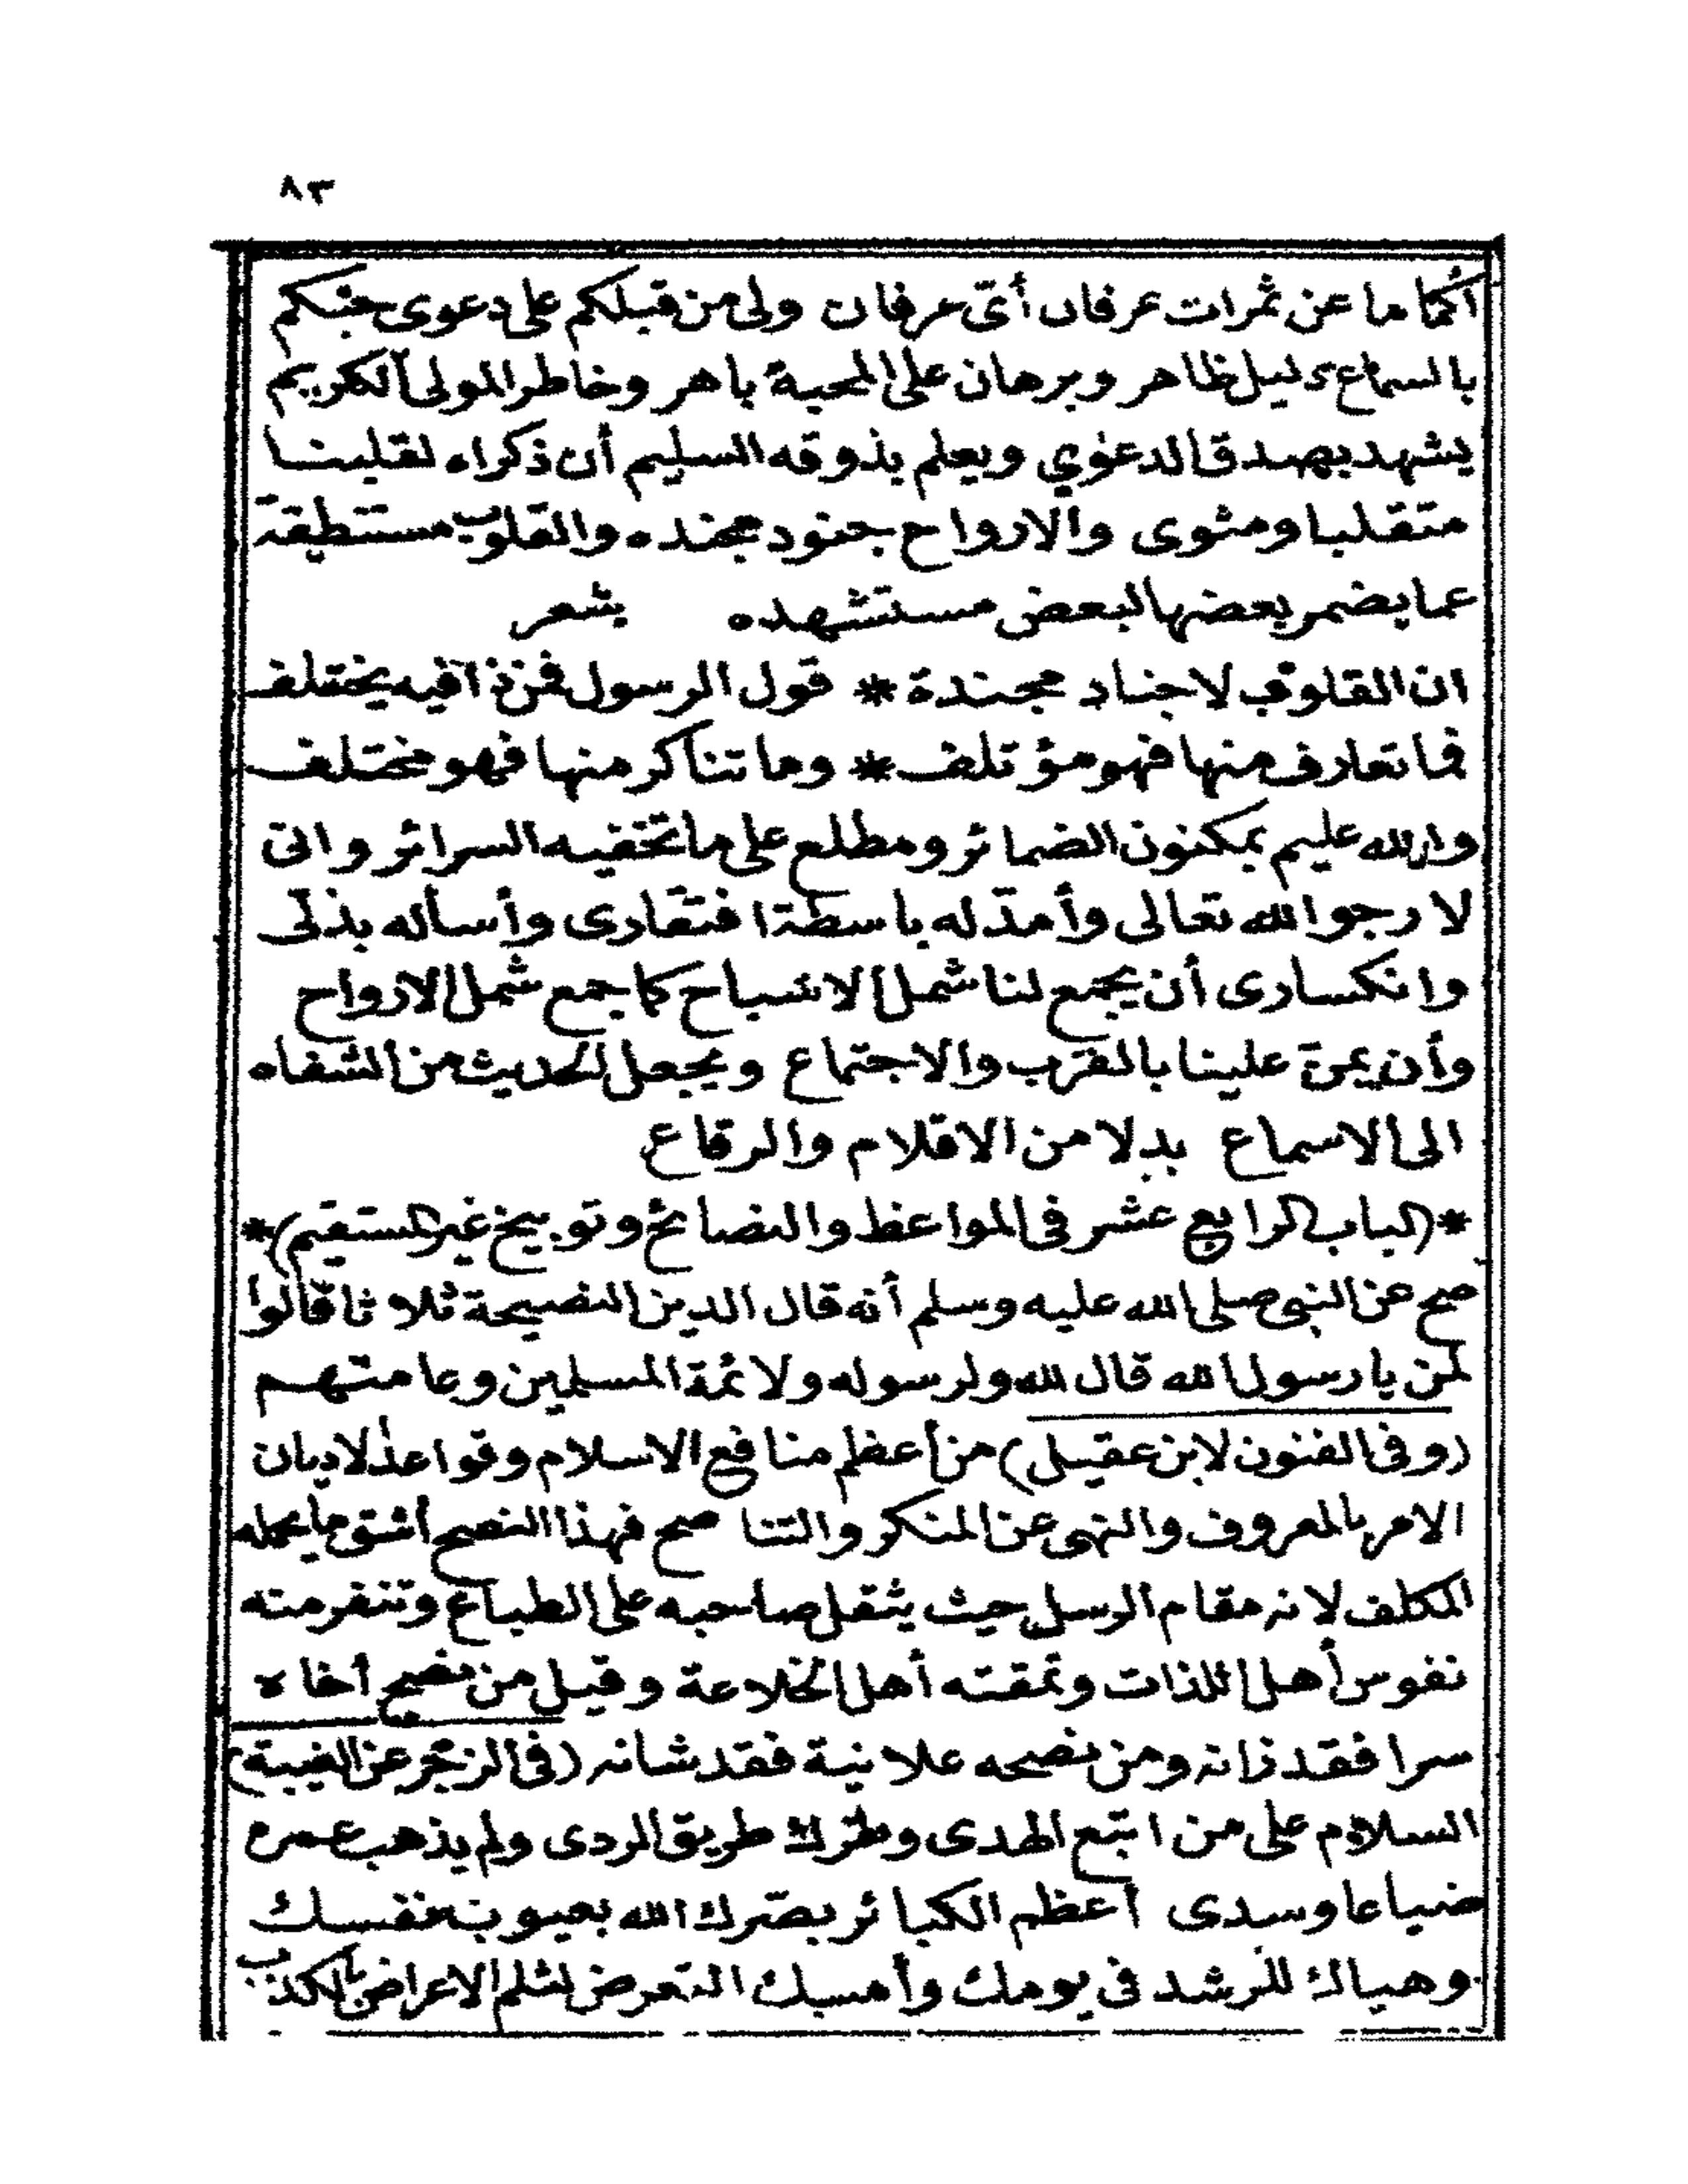 ٨٣
أكماما عن ثمرات عرفان أىّ عرفان ولى من قبلكم على دعوى حبّكم
بالسماع دليل ظاهر وبرهان على المحبة باهر وخاطر المولى الكريم
يشهد بصدق الدعوي ويعلم بذوقه السليم أن ذكراه لقلبنا
متقلبا ومثوى والارواح جنود مجنده والقلوب مستنطقة
عما يضمر بعضها لبعض مستشهده شعر
ان القلوب لاجناد مجندة * قول الرسول فمن ذا فيه يختلف
فما تعارف منها فهو مؤتلف * وما تناكر منها فهو مختلف
والله عليم بمكنون الضمائر ومطلع على ما تخفيه السرائر وانى
لارجو الله تعالى وأمدّ له باسطة افتقارى وأسأله بذلّى
وانكسارى أن يجمع لنا شمل الاشباح كما جمع شمل الارواح
وأن يمنّ علينا بالقرب والاجتماع ويجعل الحديث من الشفاه
الى الاسماع بدلا من الاقلام والرقاع
*(الباب الرابع عشر فى المواعظ والنصائح وتوبيخ غير المستقيم)*
صح عن النبى صلى الله عليه وسلم أنه قال الدين النصيحة ثلاثا قالوا
لمن يا رسول الله قال لله ولرسوله ولائمة المسلمين وعامتهم
(وفى الفنون لابن عقيل) من أعظم منافع الاسلام وقواعد الاديان
الامر بالمعروف والنهى عن المنكر والتناصح فهذا النصح أشق ما يحمله
المكلف لانه مقام الرسل حيث يثقل صاحبه على الطباع وتنفر منه
نفوس أهل اللذات وتمقته أهل الخلاعة وقيل من نصح أخاه
سرا فقد زانه ومن نصحه علانية فقد شانه (فى الزجر عن الغيبة)
السلام على من اتبع الهدى وترك طريق الردى ولم يذهب عمره
ضياعا وسدى أعظم الكبائر بصّرك الله بعيوب نفسك
وهياك للرشد فى يومك وأمسك التعرض لثلم الاعراض بالكذب